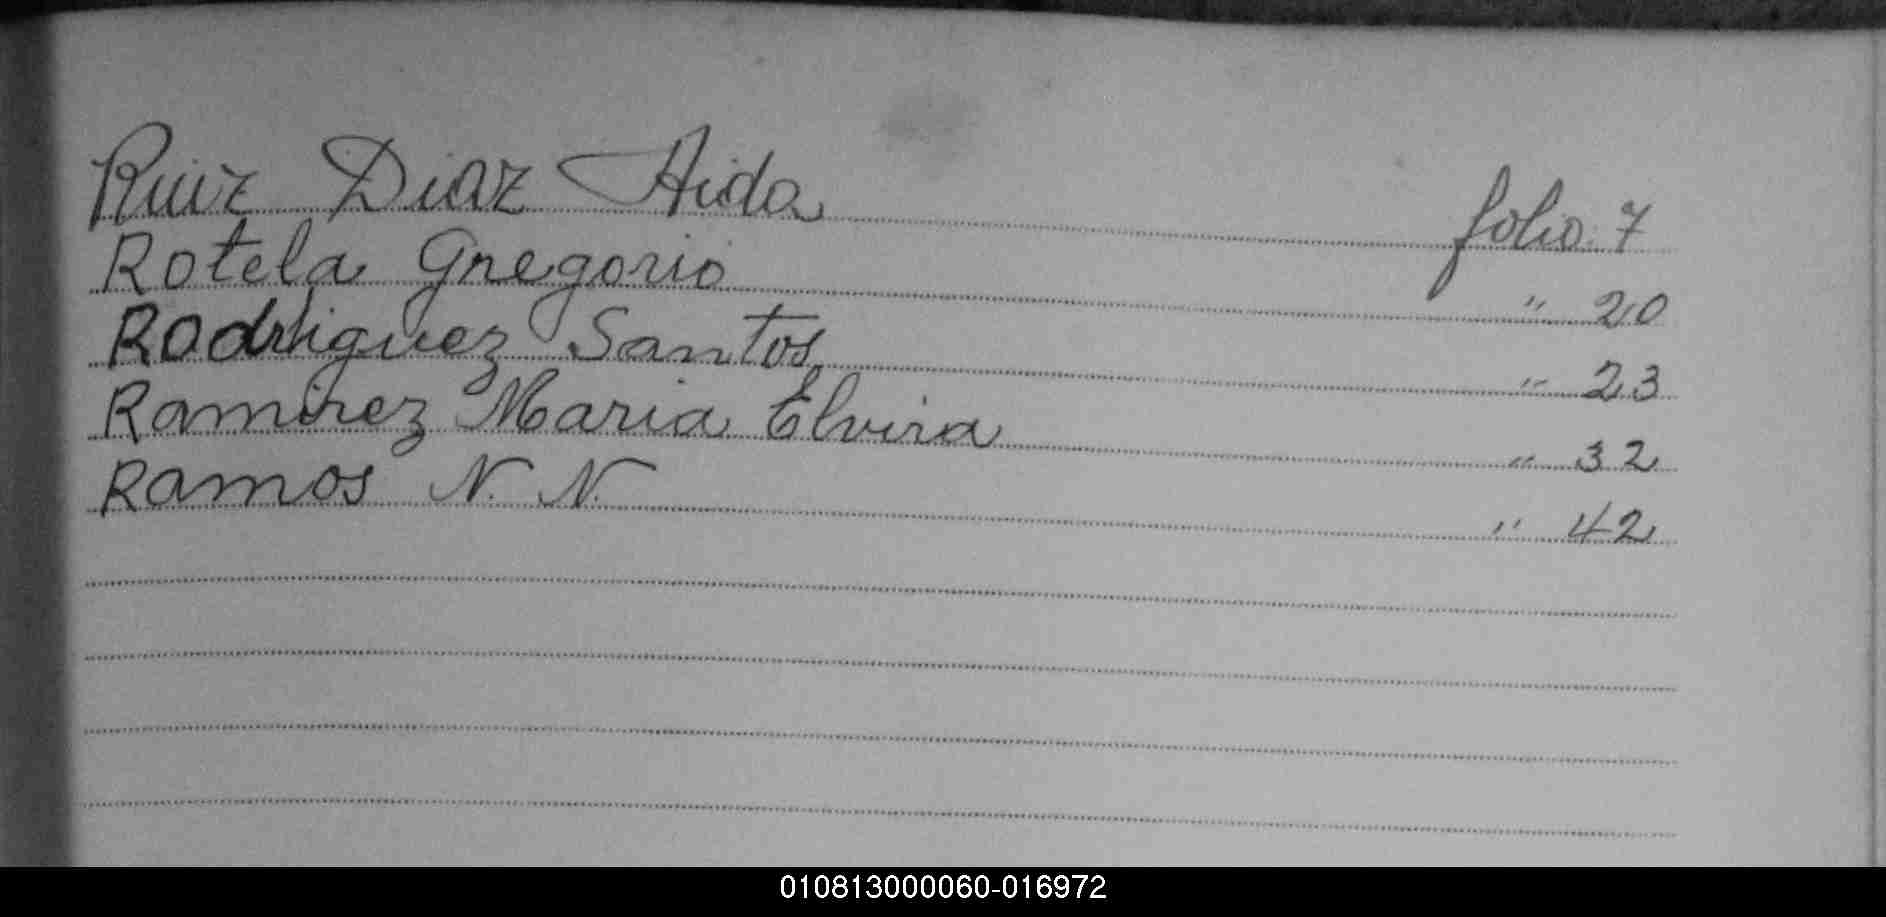 Ruiz Diaz Aida folio 7
Rotela Gregorio " 20
Rodriguez Santos " 23
Ramirez Maria Elvira " 32
Ramos N. N. " 42
010813000060-016972